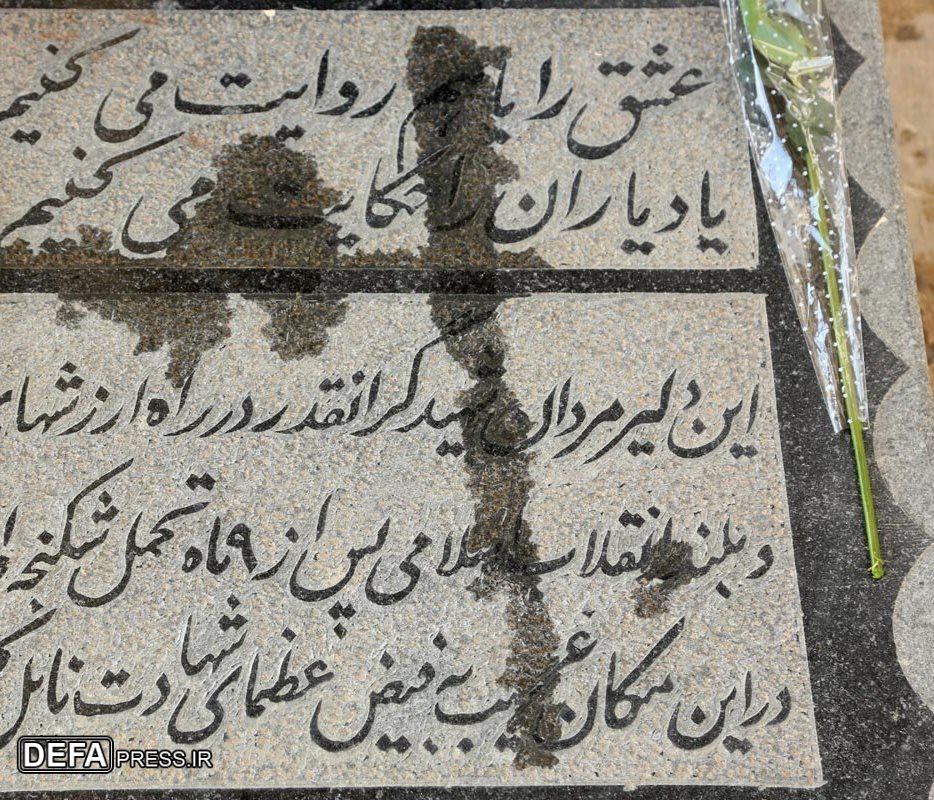 عشق را با هم روایت می کنیم
یاد یاران را حکایت می کنیم
این دلیر مردان شهید گرانقدر در راه ارزشهای
و بلند انقلاب اسلامی پس از ۹ ماه تحمل شکنجه
در این مکان غریب به فیض عظمای شهادت نائل
DEFAPRESS.IR